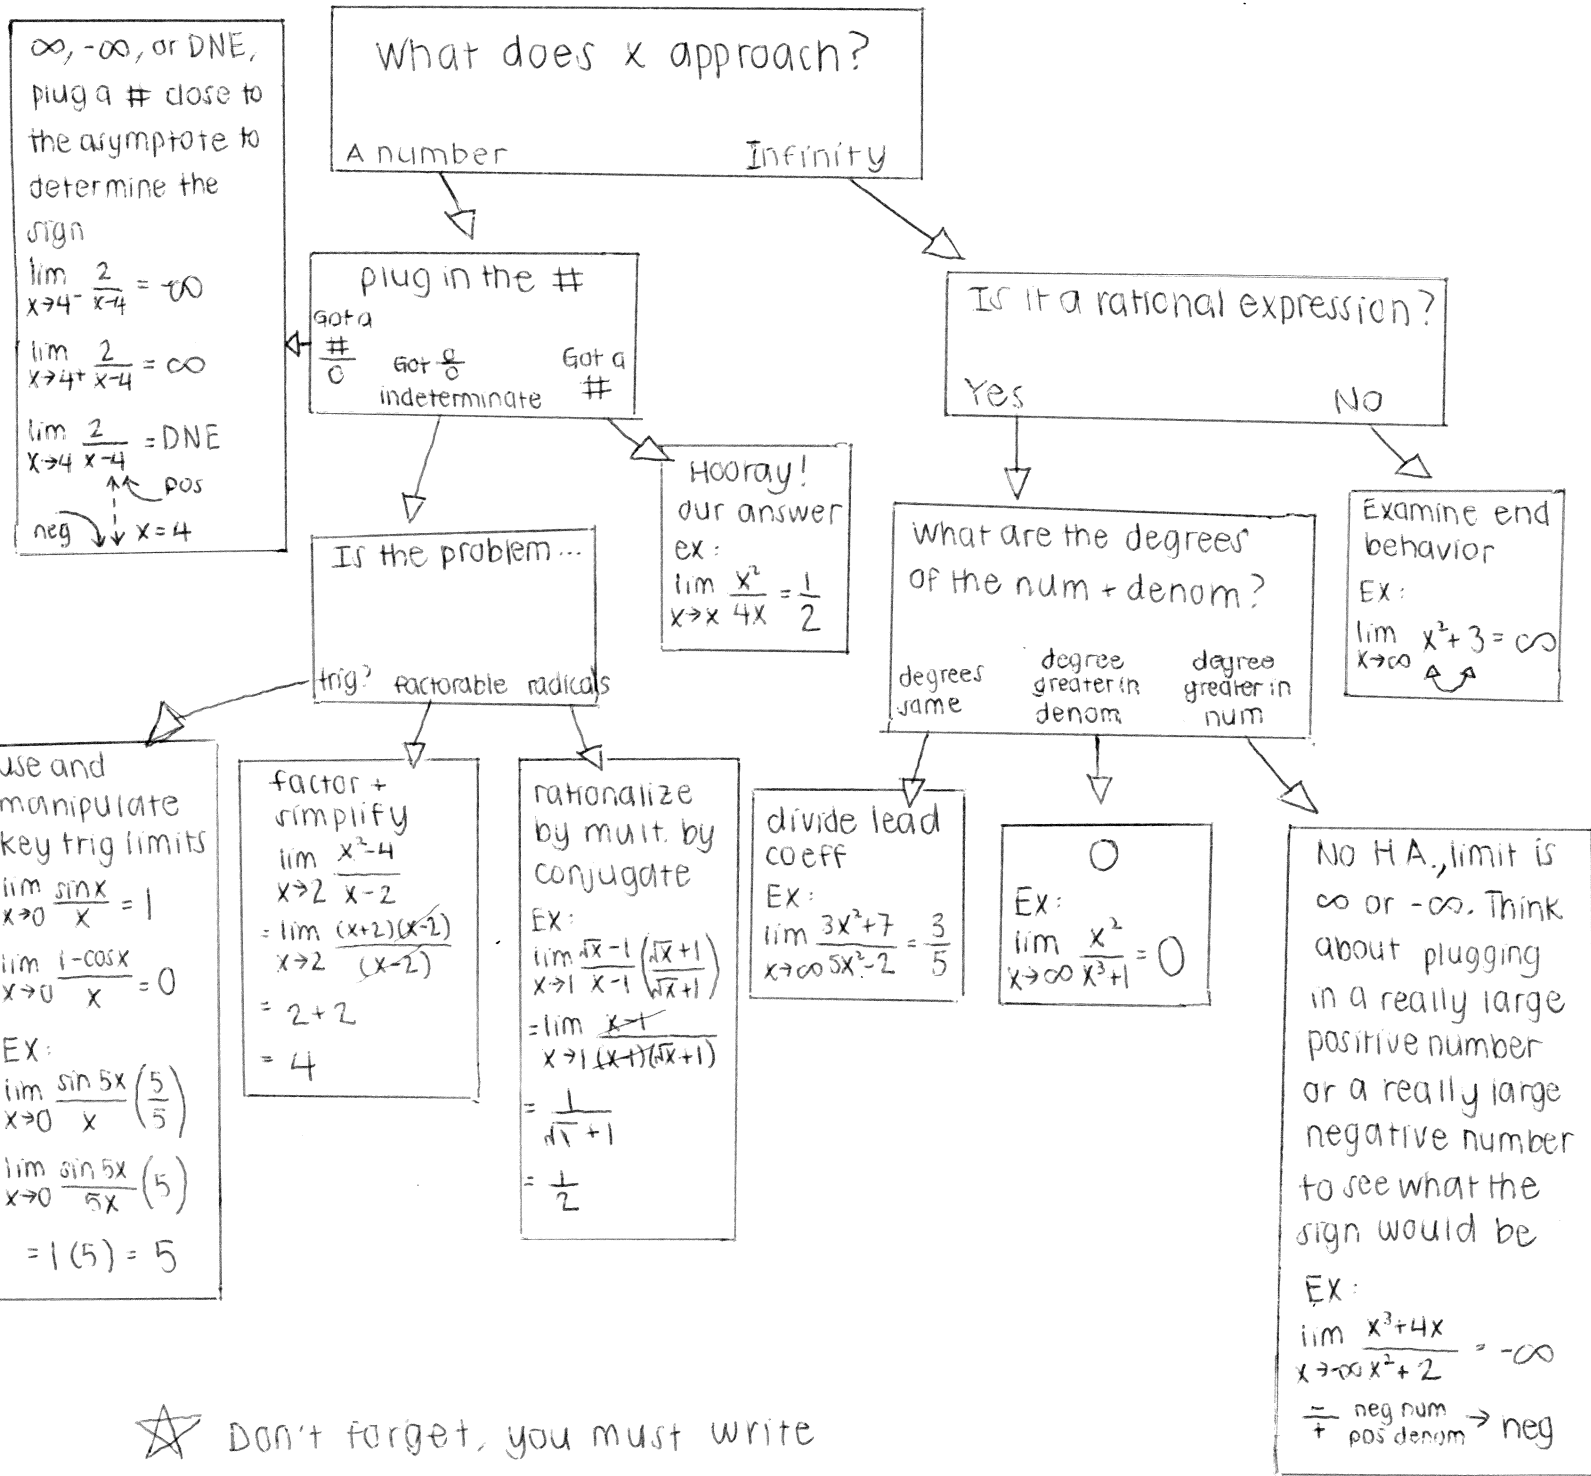 What does x approach?
A number
Infinity
∞, -∞, or DNE,
plug a # close to
the asymptote to
determine the
sign
lim x→4⁻ 2/(x-4) = -∞
lim x→4⁺ 2/(x-4) = ∞
lim x→4 2/(x-4) = DNE
pos
neg x=4
plug in the #
Got a
#/0
Got 0/0
indeterminate
Got a
#
Hooray!
our answer
ex:
lim x→x x²/4x = 1/2
Is the problem...
trig? factorable radicals
use and
manipulate
key trig limits
lim x→0 sinx/x = 1
lim x→0 (1-cosx)/x = 0
EX:
lim x→0 sin 5x/x (5/5)
lim x→0 sin 5x/5x (5)
= 1(5) = 5
factor +
simplify
lim x→2 (x²-4)/(x-2)
= lim x→2 (x+2)(x-2)/(x-2)
= 2+2
= 4
rationalize
by mult. by
conjugate
EX:
lim x→1 (√x-1)/(x-1) ((√x+1)/(√x+1))
= lim x→1 (x-1)/((x-1)(√x+1))
= 1/(√1+1)
= 1/2
Is it a rational expression?
Yes
No
Examine end
behavior
EX:
lim x→∞ x²+3 = ∞
What are the degrees
of the num + denom?
degrees
same
degree
greater in
denom
degree
greater in
num
divide lead
coeff
EX:
lim x→∞ (3x²+7)/(5x²-2) = 3/5
0
EX:
lim x→∞ x²/(x³+1) = 0
No H.A., limit is
∞ or -∞. Think
about plugging
in a really large
positive number
or a really large
negative number
to see what the
sign would be
EX:
lim x→-∞ (x³+4x)/(x²+2) = -∞
-/+ neg num
pos denom → neg
☆ Don't forget, you must write